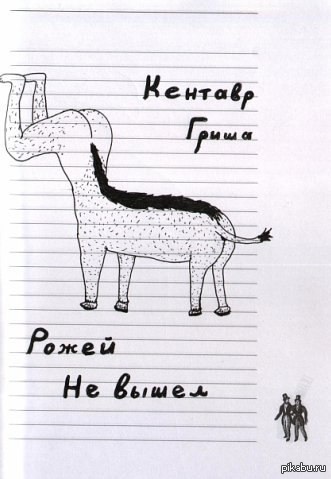 Кентавр
Гриша
Рожей
Не вышел
pikabu.ru